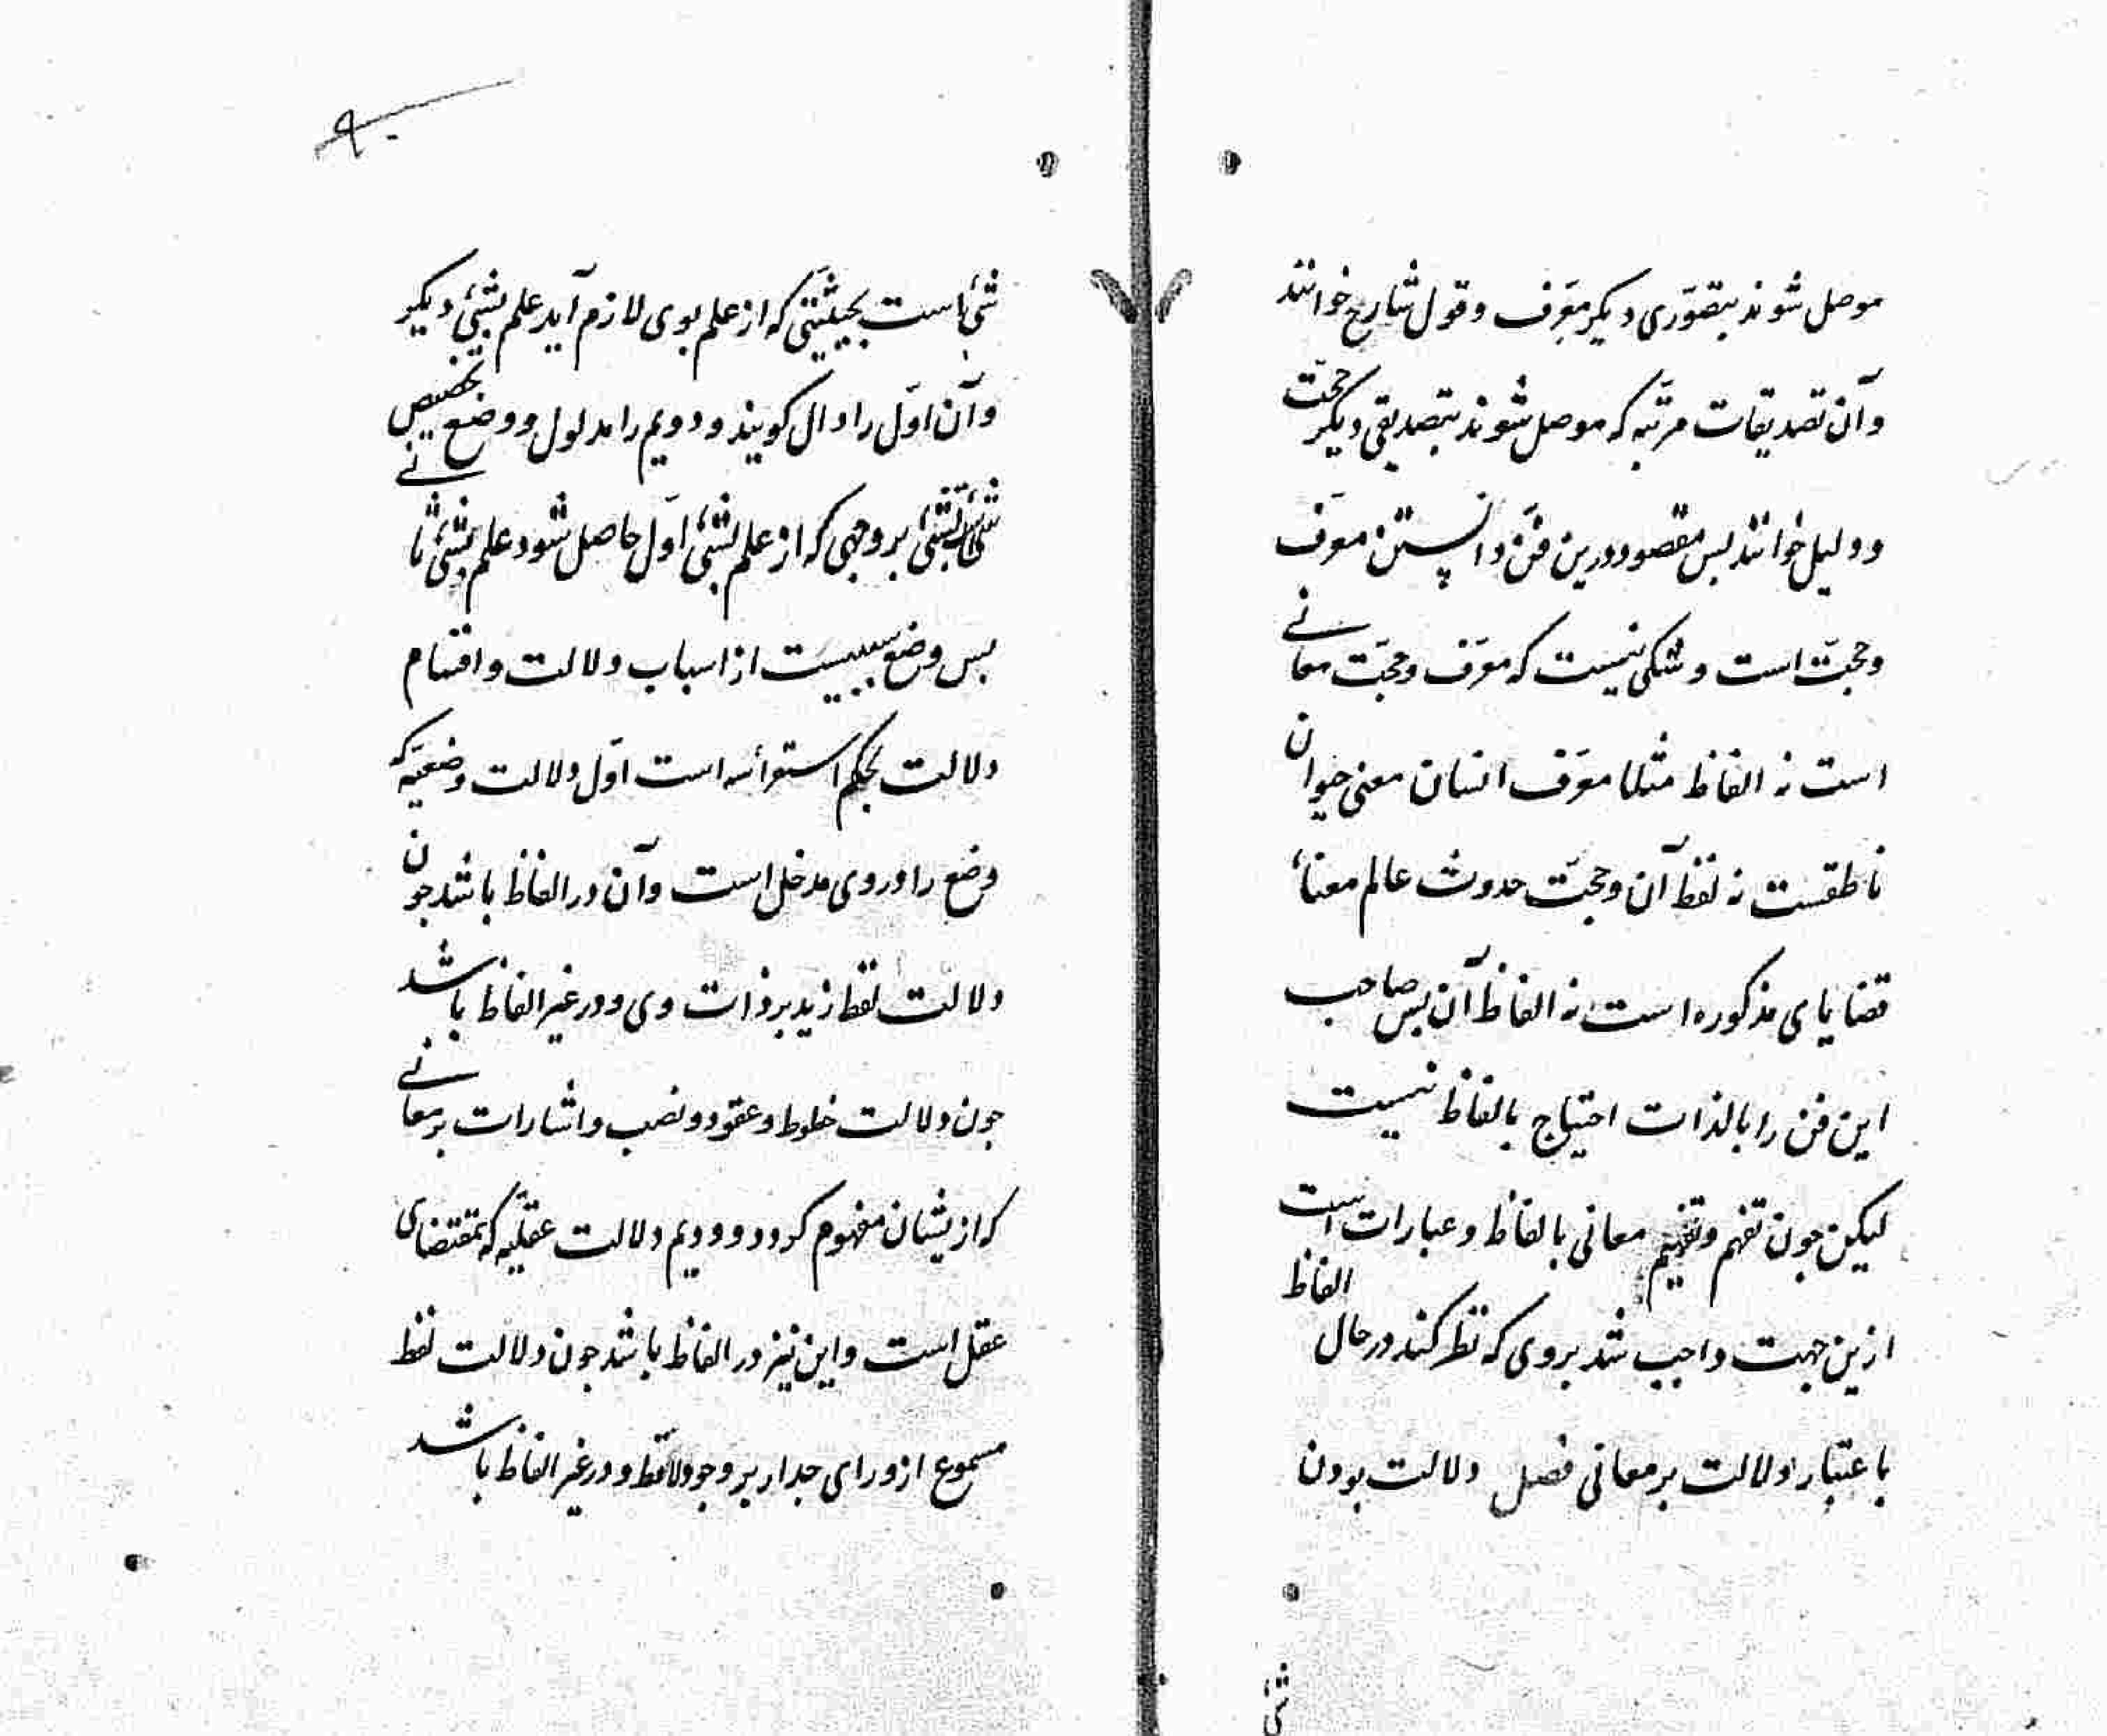 موصل شوند بتصوّری دیکر معرّف و قول شارح خوانند
وآن تصدیقات مرتّبه که موصل شوند بتصدیقی دیکر حجّت
و دلیل خوانند بس مقصود درین فنّ دانستن معرّف
و حجّت است و شکی نیست که معرّف و حجّت معانی
است نه الفاظ مثلا معرّف انسان معنی حیوان
ناطقست نه لفظ آن و حجّت حدوث عالم معناء
قضایای مذکوره است نه الفاظ آن بس صاحب
این فن را بالذات احتیاج بالفاظ نیست
لیکن جون تفهم و تفهیم معانی بالفاظ و عبارات است
ازین جهت واجب شد بروی که نظر کند در حال الفاظ
باعتبار دلالت بر معانی فصل دلالت بودن
شئ
۹۰
شئ است بحیثیّتی که از علم بوی لازم آید علم بشیء دیکر
وآن اوّل را دال کویند و دویم را مدلول و وضع تخصیص
شیء بشیء بر وجهی که از علم بشیء اوّل حاصل شود علم بشیء ثانی
بس وضع سببیست از اسباب دلالت و اقسام
دلالت بحکم استقرا سه است اوّل دلالت وضعیّه که
وضع را در وی مدخل است وآن در الفاظ باشد جون
دلالت لفظ زید بر ذات وی و در غیر الفاظ باشد
جون دلالت خطوط و عقود و نصب و اشارات بر معانی
که ازیشان مفهوم کردد و دویم دلالت عقلیّه که بمقتضای
عقل است و این نیز در الفاظ باشد جون دلالت لفظ
مسموع از ورای جدار بر وجود لافظ و در غیر الفاظ باشد